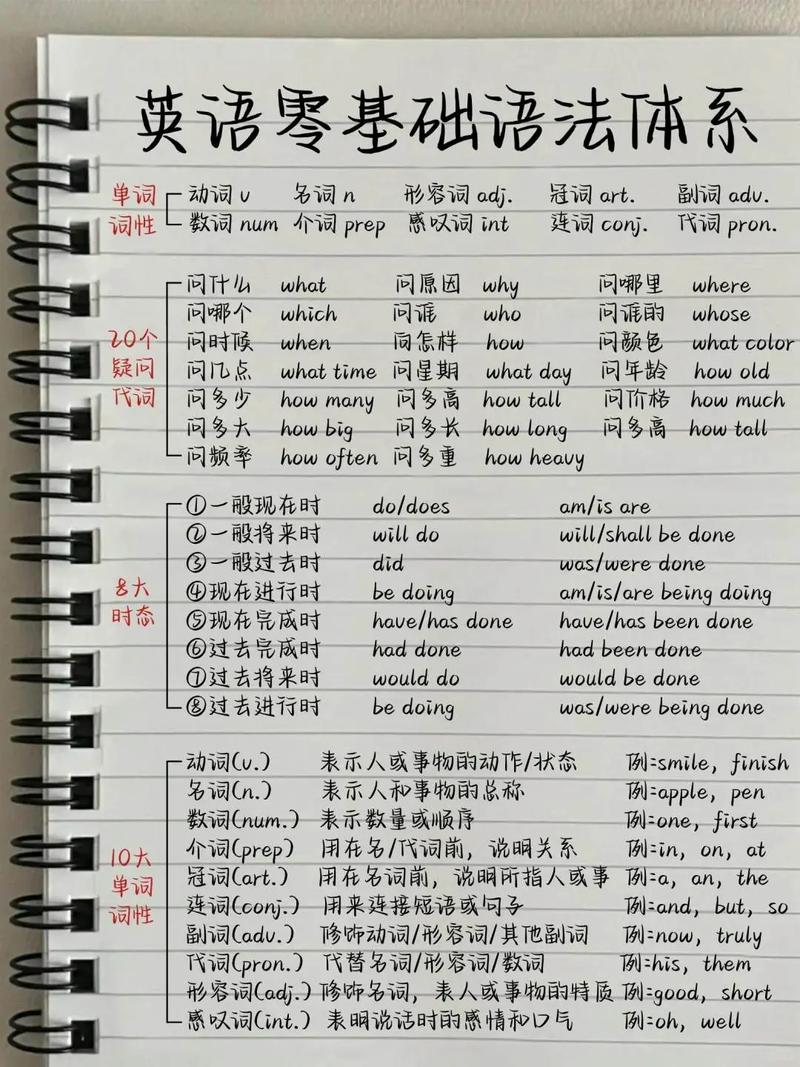 英语零基础语法体系
单词 动词 v 名词 n 形容词 adj. 冠词 art. 副词 adv.
词性 数词 num 介词 prep 感叹词 int 连词 conj. 代词 pron.
问什么 what 问原因 why 问哪里 where
问哪个 which 问谁 who 问谁的 whose
20个 问时候 when 问怎样 how 问颜色 what color
疑问 问几点 what time 问星期 what day 问年龄 how old
代词 问多少 how many 问多高 how tall 问价格 how much
问多大 how big 问多长 how long 问多高 how tall
问频率 how often 问多重 how heavy
①一般现在时 do/does am/is are
②一般将来时 will do will/shall be done
③一般过去时 did was/were done
8大 ④现在进行时 be doing am/is/are being doing
时态 ⑤现在完成时 have/has done have/has been done
⑥过去完成时 had done had been done
⑦过去将来时 would do would be done
⑧过去进行时 be doing was/were being done
动词(v.) 表示人或事物的动作/状态 例:smile, finish
名词(n.) 表示人和事物的总称 例:apple, pen
数词(num.) 表示数量或顺序 例:one, first
10大 介词(prep) 用在名/代词前, 说明关系 例:in, on, at
单词 冠词(art.) 用在名词前, 说明所指人或事 例:a, an, the
词性 连词(conj.) 用来连接短语或句子 例:and, but, so
副词(adv.) 修饰动词/形容词/其他副词 例:now, truly
代词(pron.) 代替名词/形容词/数词 例:his, them
形容词(adj.) 修饰名词, 表人或事物的特质 例:good, short
感叹词(int.) 表明说话时的感情和口气 例:oh, well